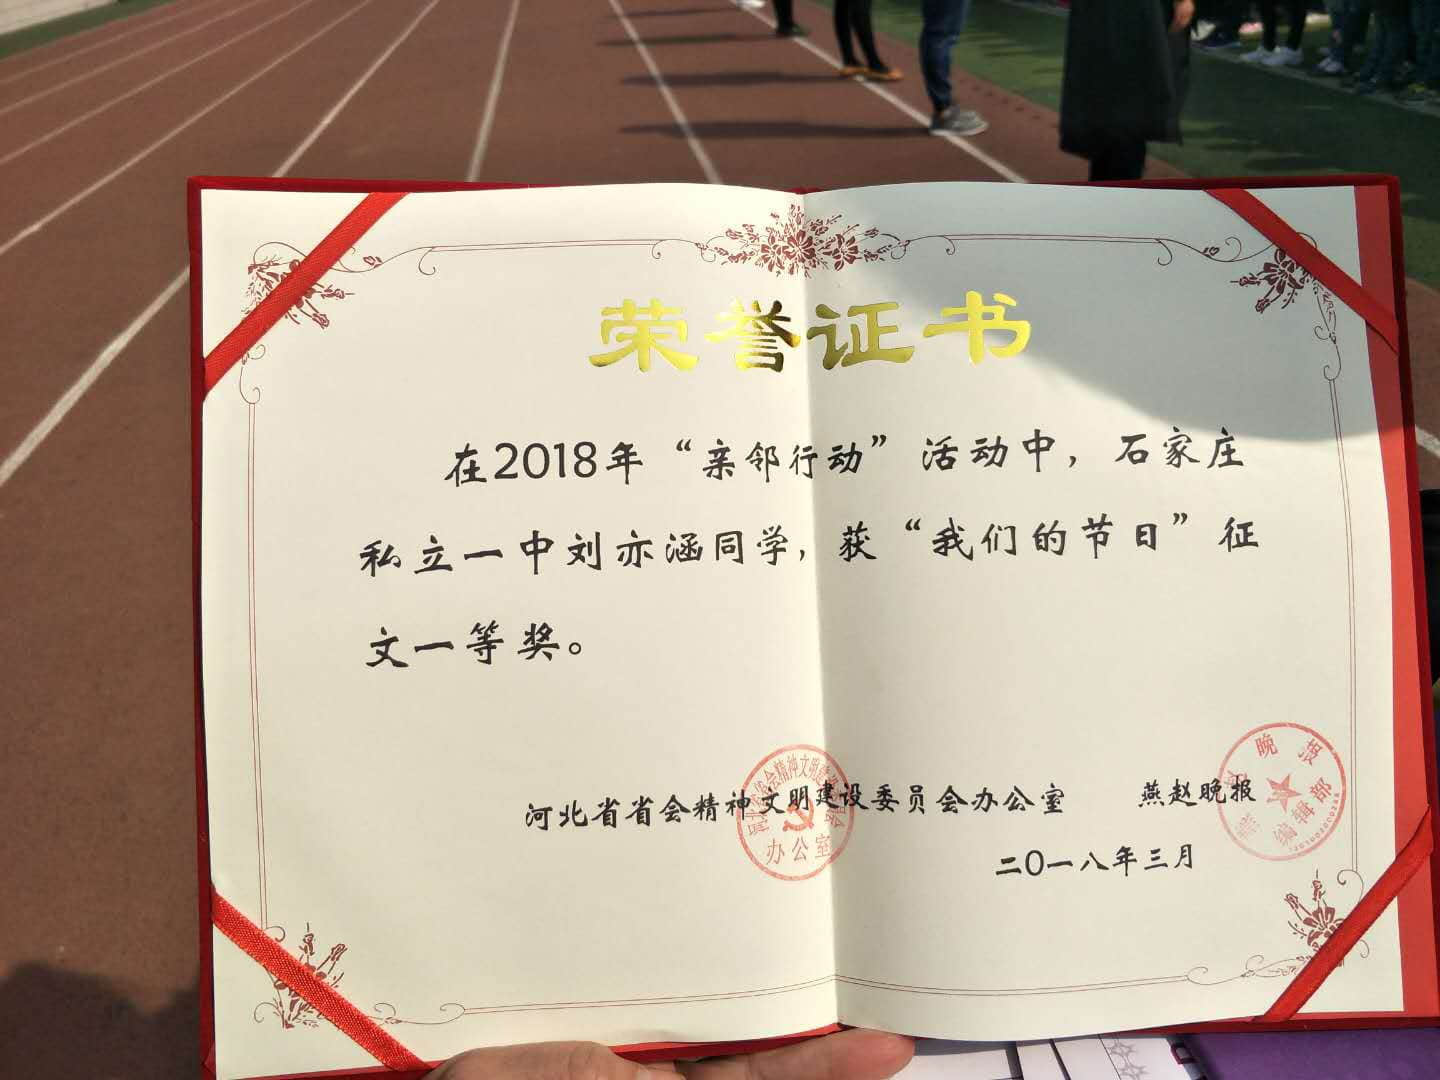 荣誉证书
在2018年“亲邻行动”活动中，石家庄
私立一中刘亦涵同学，获“我们的节日”征
文一等奖。
河北省省会精神文明建设委员会办公室 燕赵晚报
二〇一八年三月
办公室
晚报
编辑部